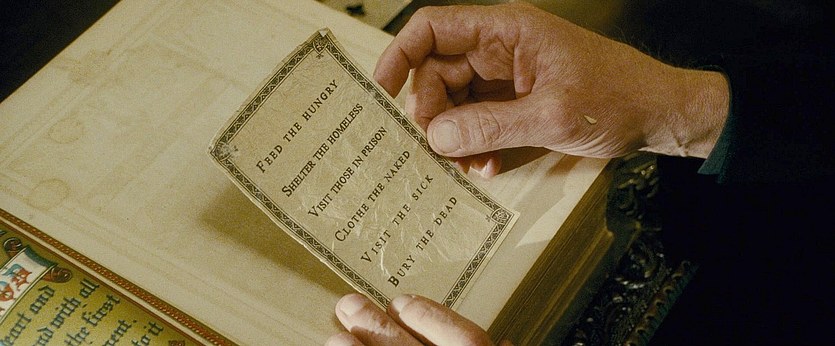 FEED THE HUNGRY
SHELTER THE HOMELESS
VISIT THOSE IN PRISON
CLOTHE THE NAKED
VISIT THE SICK
BURY THE DEAD
eart and
nd with all
the first
ment.
to it